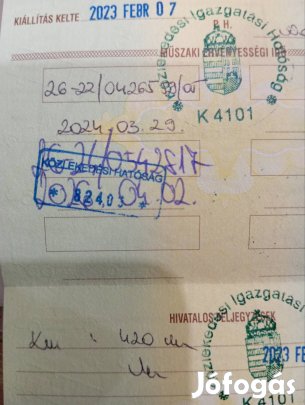 KIÁLLÍTÁS KELTE 2023 FEBR 07
P. H.
Közlekedési Igazgatási Hatóság
MŰSZAKI ÉRVÉNYESSÉGI IDŐ
K 4101
26-22/04265
2024. 03. 29.
KÖZLEKEDÉSI HATÓSÁG
HIVATALOS FELJEGYZÉSEK
Közlekedési Igazgatási
2023 FE
Km : 420 km
K 4101
Jófogás